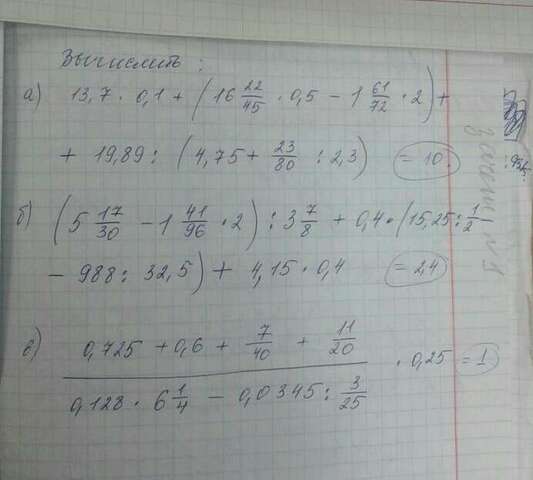 Вычислить:
а) 13,7 · 0,1 + (16 22/45 · 0,5 − 1 61/72 · 2) +
+ 19,89 : (4,75 + 23/80 : 2,3) = 10
б) (5 17/30 − 1 41/96 · 2) : 3 7/8 + 0,4 · (15,25 : 1/2 −
− 988 : 32,5) + 4,15 · 0,4 = 2,4
в) (0,725 + 0,6 + 7/40 + 11/20) / (0,128 · 6 1/4 − 0,0345 : 3/25) · 0,25 = 1